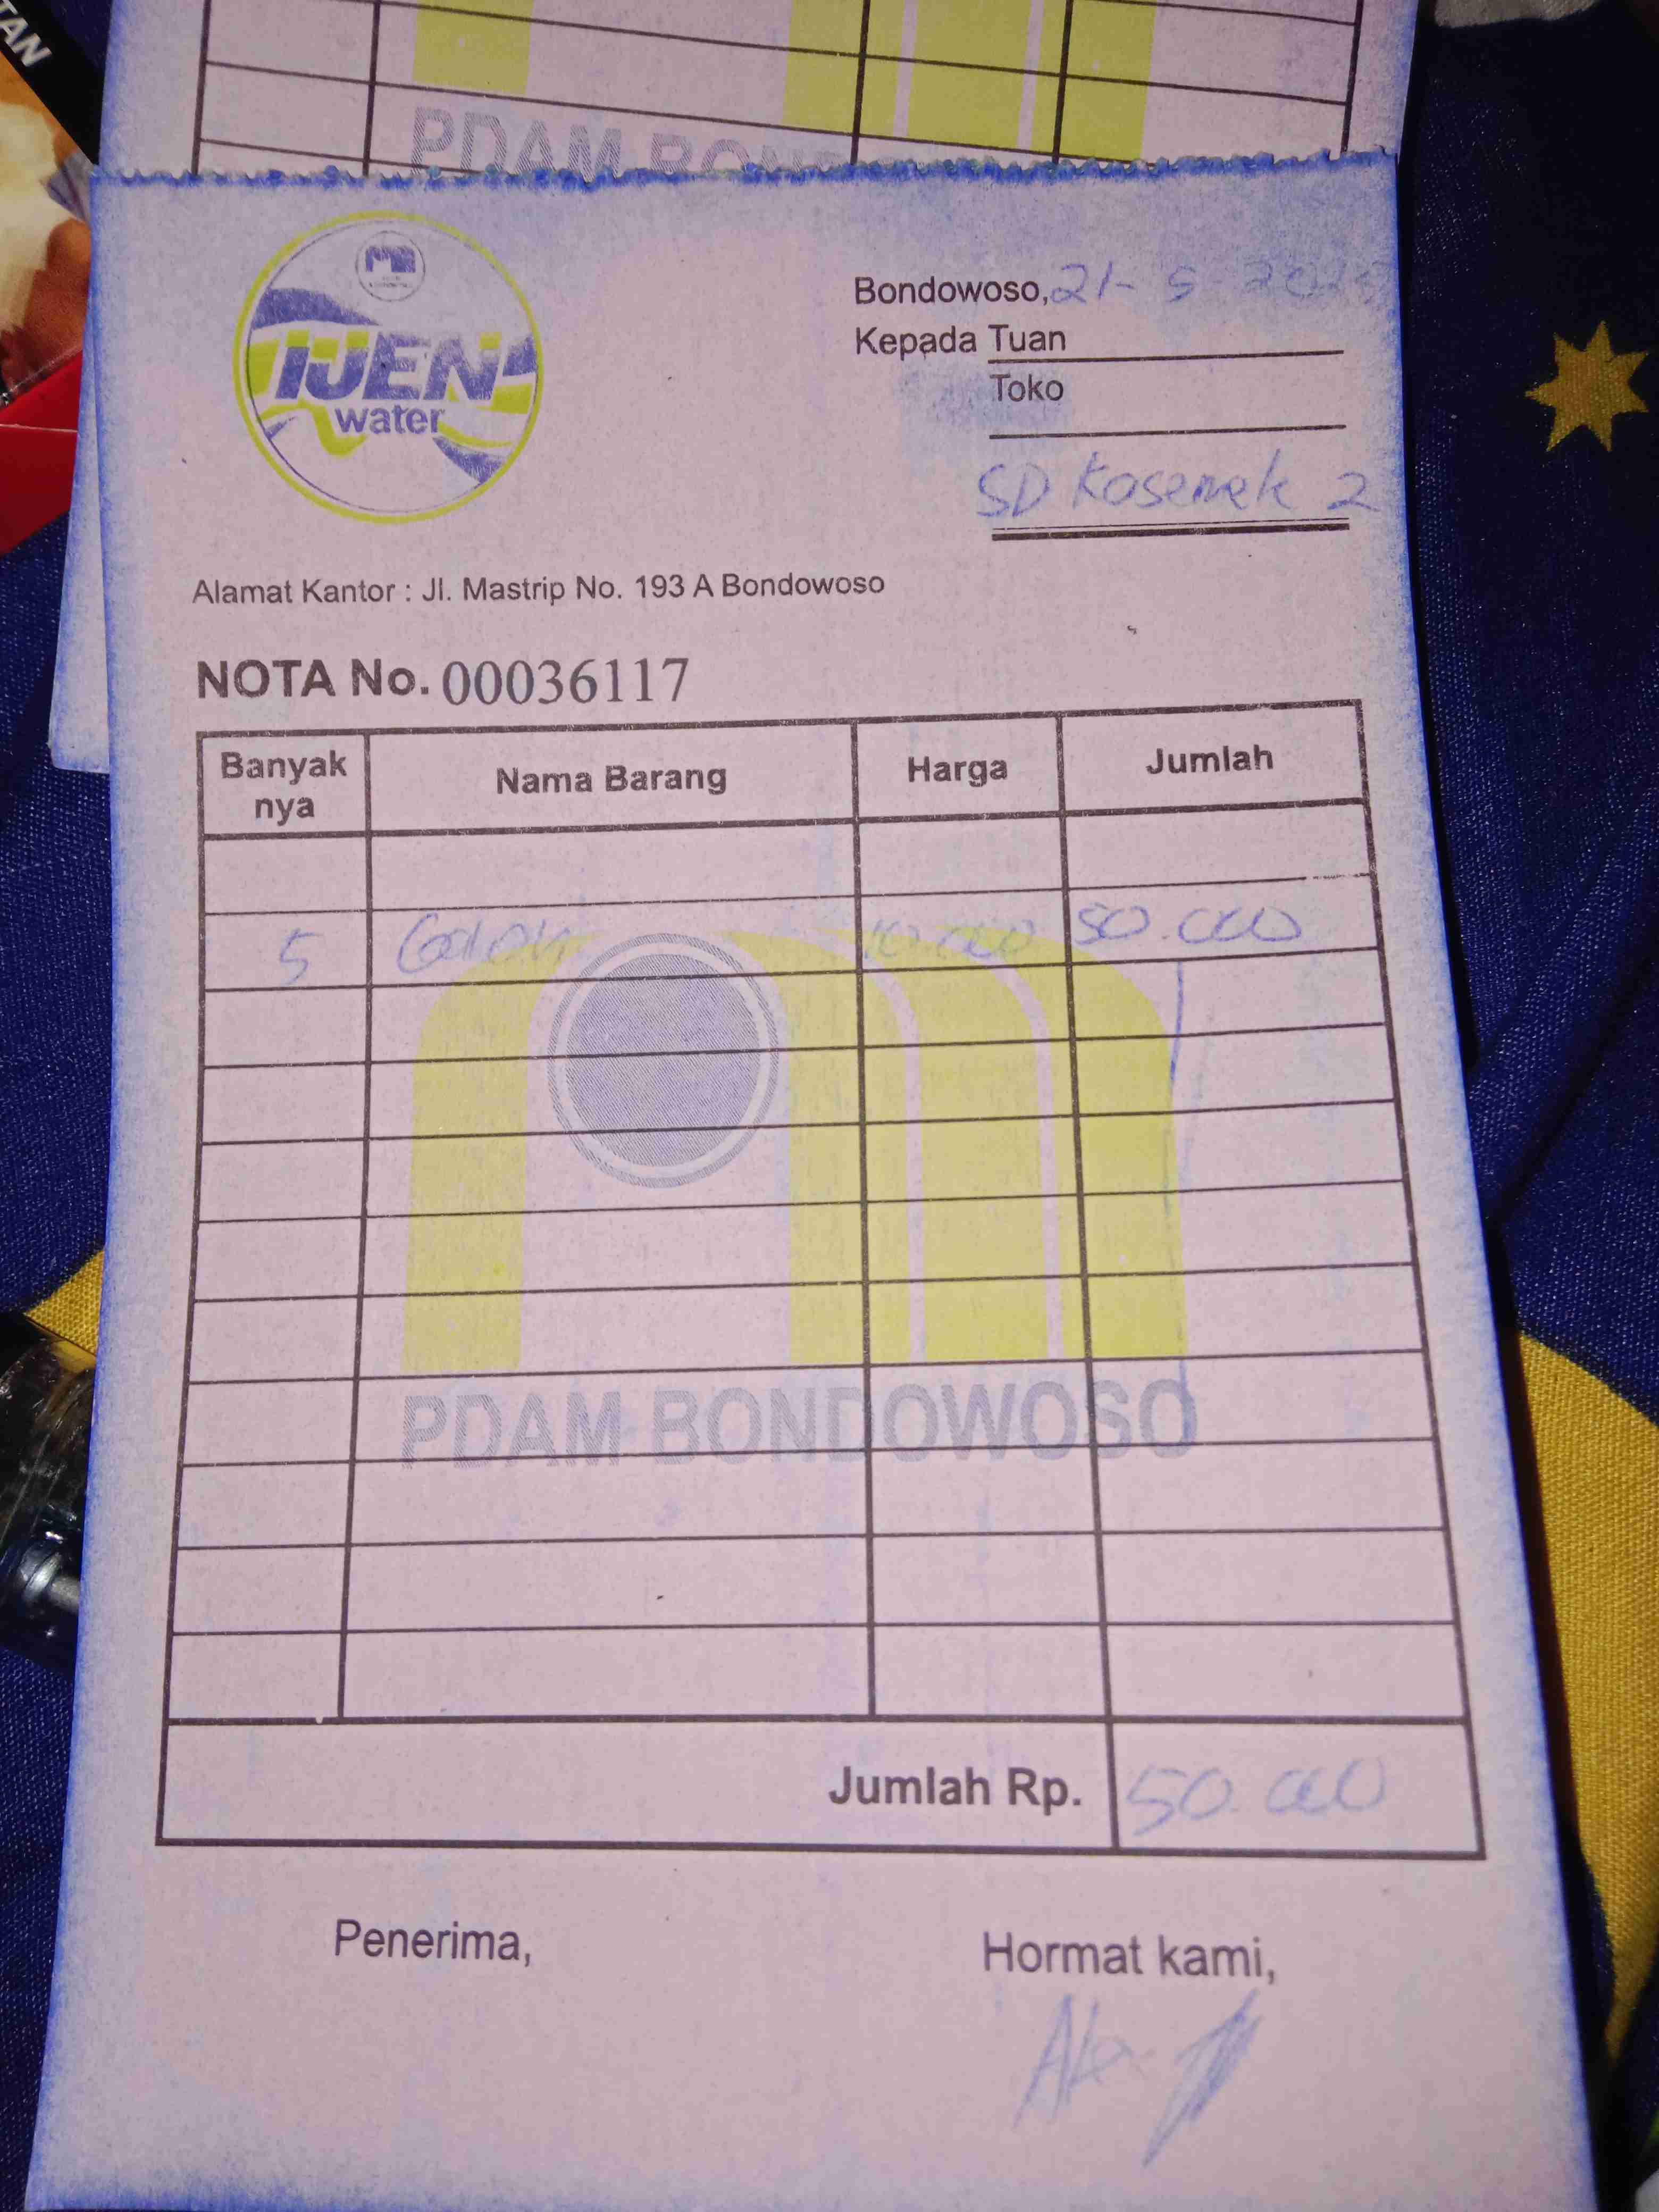 TAN
PDAM BONDOWOSO
IJEN
water
Bondowoso, 21-5-
Kepada Tuan
Toko
SD Kosemek 2
Alamat Kantor : Jl. Mastrip No. 193 A Bondowoso
NOTA No. 00036117
Banyak nya Nama Barang Harga Jumlah
5 Galon 10.000 50.000
PDAM BONDOWOSO
Jumlah Rp. 50.000
Penerima, Hormat kami,